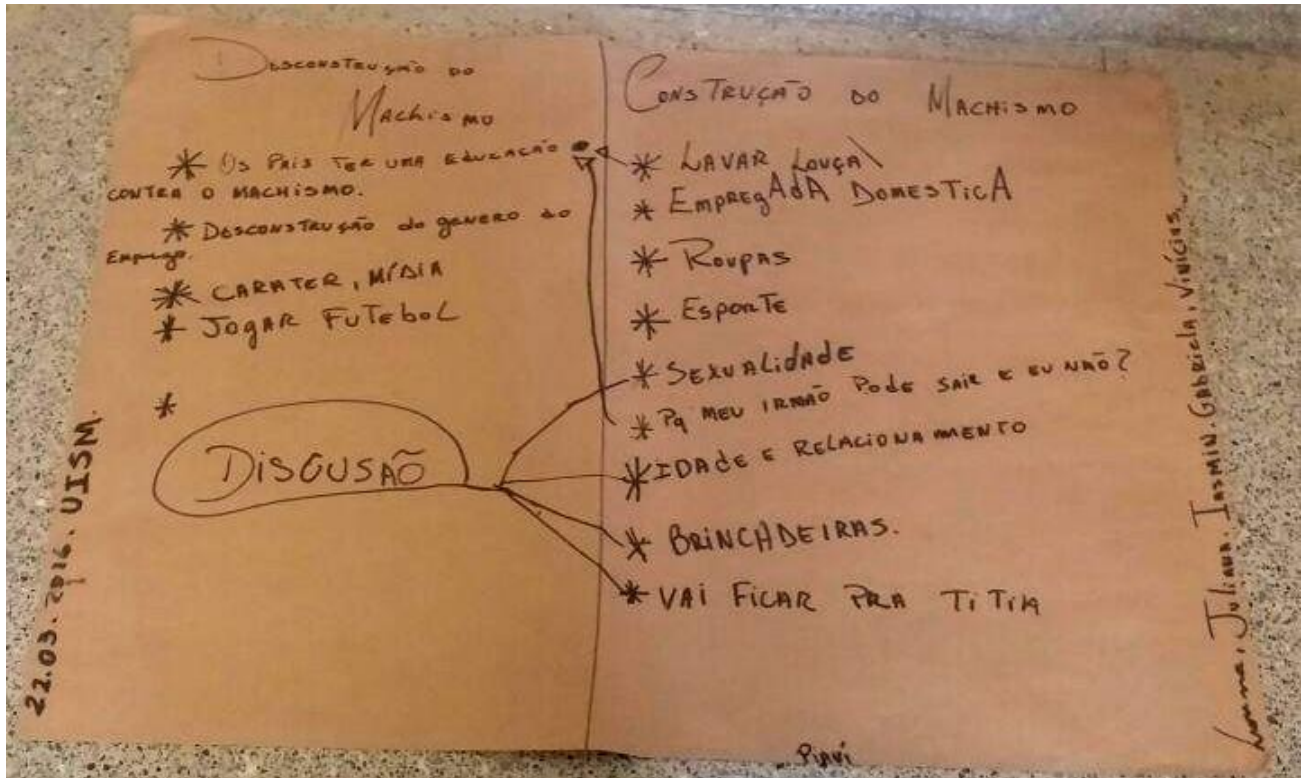 Desconstrução do
Machismo
* Os Pais Ter uma educação
contra o machismo.
* Desconstrução do genero do
Emprego.
* Carater, Mídia
* Jogar Futebol
*
Discusão
Construção do Machismo
* Lavar Louça\
* EmpregAdA DomesticA
* Roupas
* Esporte
* Sexualidade
* Pq meu irmão pode sair e eu não?
* Idade e Relacionamento
* Brincadeiras.
* Vai ficar pra titia
22.03.2016. UISM.
Juliana. Iasmin. Gabriela, Vinícius.